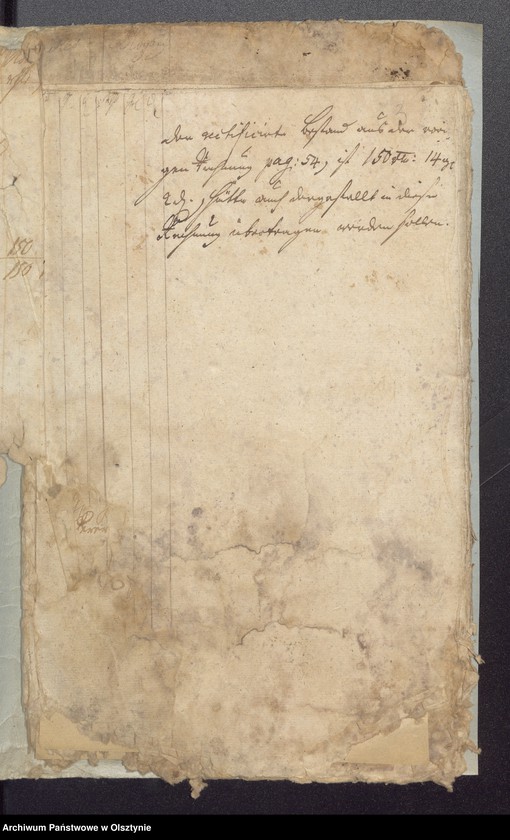 150
150
der rectificirte Bestand aus der vori-
gen Rechnung pag: 54, ist 150 14 g
2 d., hätte auch dergestallt in diese
Rechnung übertragen werden sollen.
Archiwum Państwowe w Olsztynie